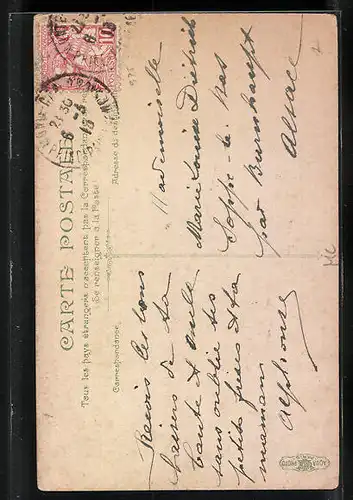 CARTE POSTALE
Tous les pays étrangers n'acceptent pas la Correspondance
(Se renseigner à la Poste)
Correspondance
Adresse du desti
Reçois les bons
baisers de ta
tante & oncle
sans oublier tes
petits frères & ta
maman
Alphonse
Mademoiselle
Marie Louise Dietrich
Soppe-le-Bas
par Burnhaupt
Alsace
10
975
AQUA PHOTO
PARIS